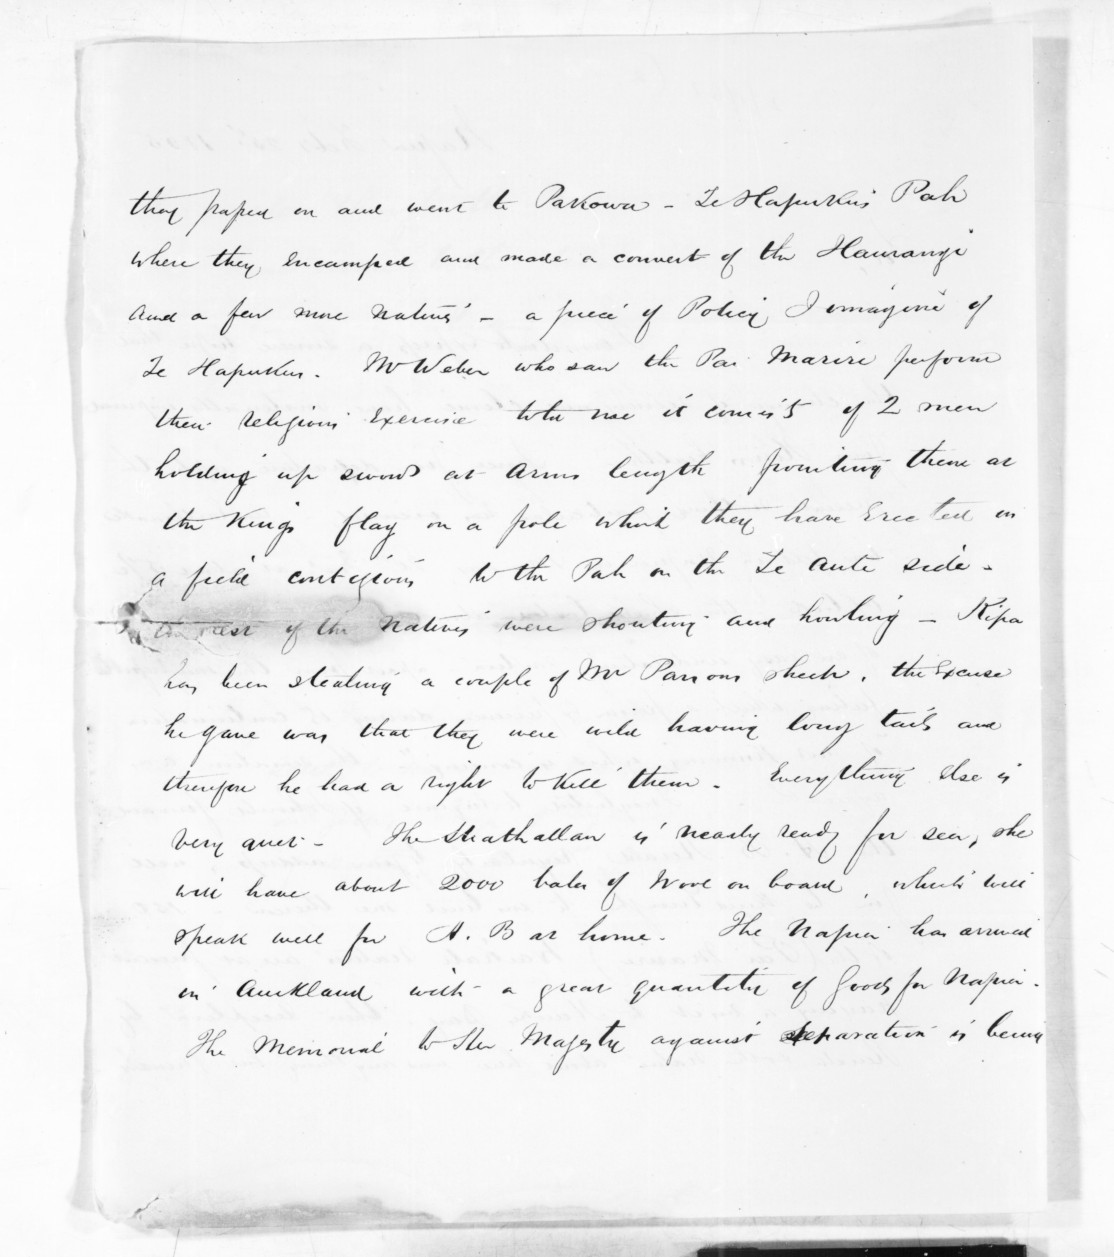 they passed on and went to Pakowa - Te Hapuku's Pah
where they encamped and made a convert of the Haurangi
and a few more natives - a piece of Policy I imagine of
Te Hapuku. Mr Weber who saw the Pai Marire perform
their religious exercise tells me it consists of 2 men
holding up swords at arms length pointing them at
the Kings flag on a pole which they have erected in
a field contigious to the Pah on the Te Aute side -
the rest of the natives were shouting and howling - Kipa
has been stealing a couple of Mr Parsons sheep, the excuse
he gave was that they were wild having long tails and
therefore he had a right to kill them. Everything else is
very quiet - The Strathallan is nearly ready for sea, she
will have about 2000 bales of Wool on board, which will
speak well for H. B at home. The Napier has arrived
in Auckland with a great quantity of Goods for Napier.
The Memorial to Her Majesty against separation is being